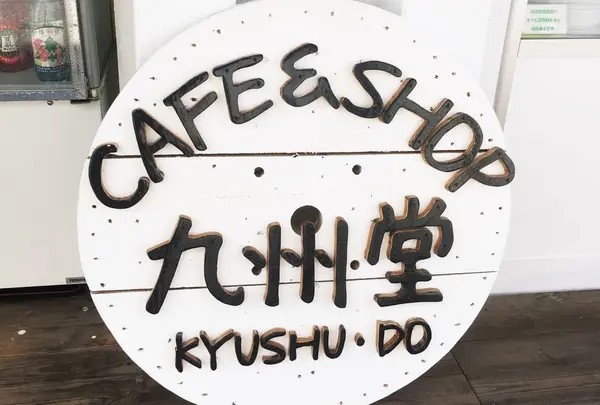 CAFE & SHOP
九州堂
KYUSHU・DO